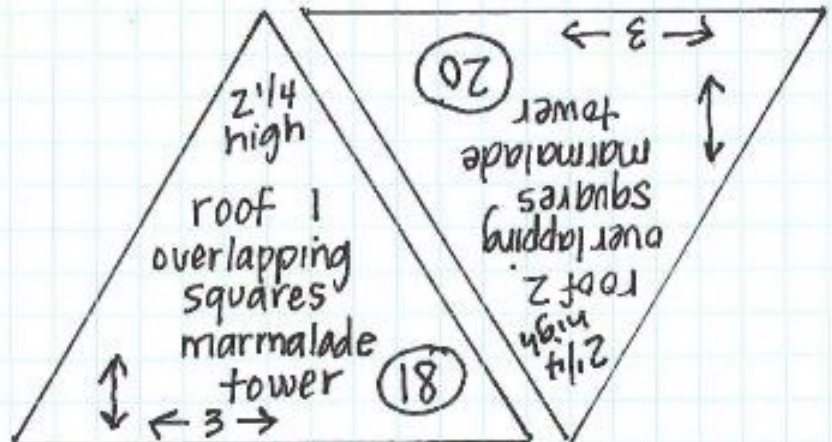 2 1/4
high
roof 1
overlapping
squares
marmalade
tower
18
← 3 →
2 1/4
high
roof 2.
overlapping
squares
marmalade
tower
20
← 3 →